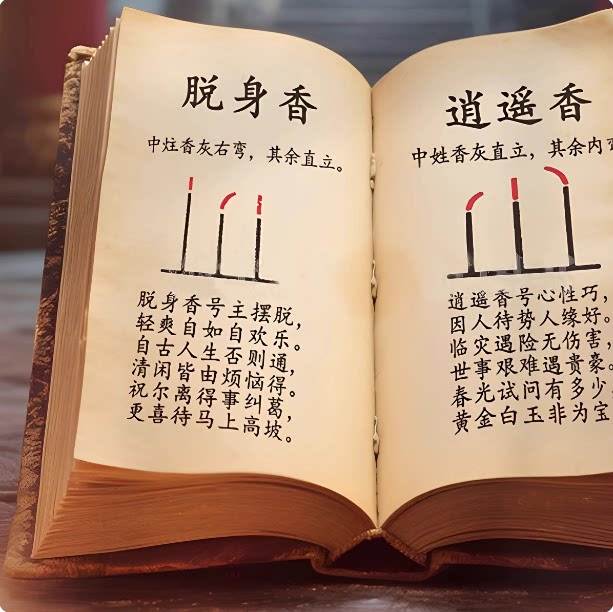 脱身香
中炷香灰右弯，其余直立。
脱身香号主摆脱，
轻爽自如自欢乐。
自古人生否则通，
清闲皆由烦恼得。
祝尔离得事纠葛，
更喜待马上高坡。
逍遥香
中姓香灰直立，其余内弯
逍遥香号心性巧，
因人待势人缘好。
临灾遇险无伤害，
世事艰难遇贵豪。
春光试问有多少，
黄金白玉非为宝